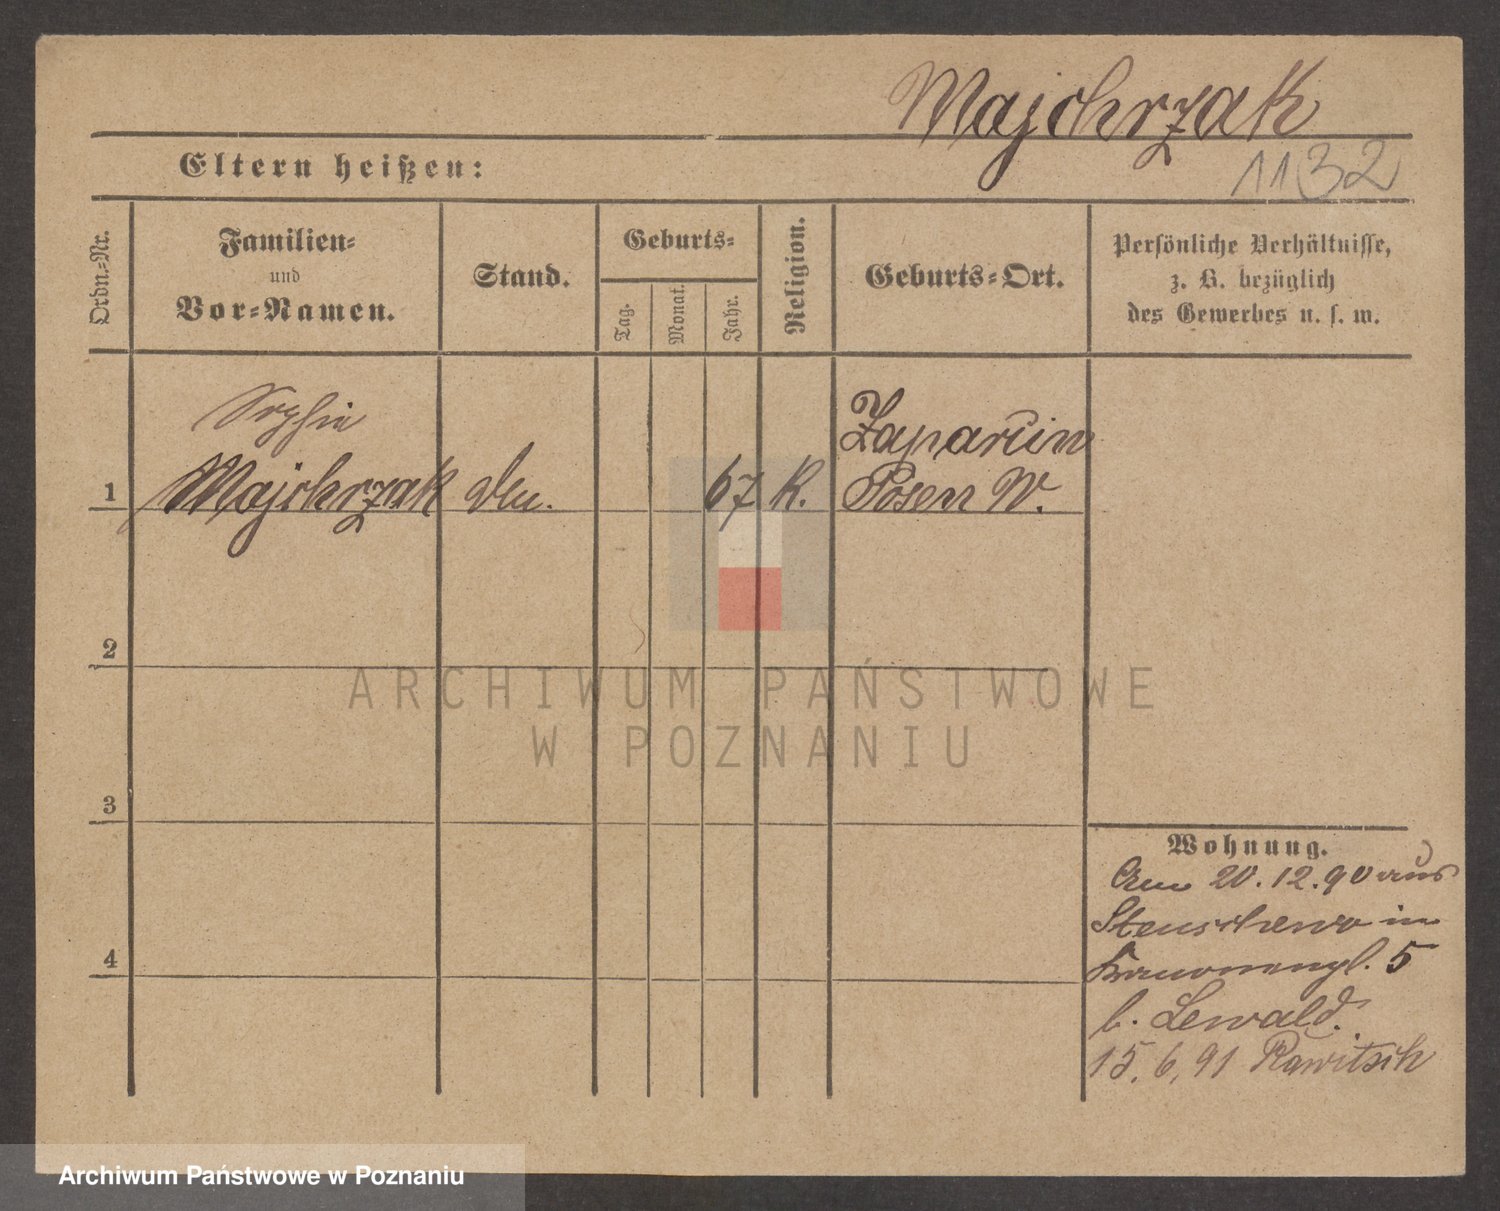 Majchrzak
Eltern heißen:
1132
Ordn.-Nr.
Familien-
und
Vor-Namen.
Stand.
Geburts-
Tag.
Monat.
Jahr.
Religion.
Geburts-Ort.
Persönliche Verhältnisse,
z. B. bezüglich
des Gewerbes u. s. w.
Sophie
Majchrzak
67 K.
Posen W.
1
2
3
4
Wohnung.
Am 20.12.90 aus
Stenschewo in
5
b. Lewald.
15.6.91 Rawitsch
ARCHIWUM PAŃSTWOWE
W POZNANIU
Archiwum Państwowe w Poznaniu